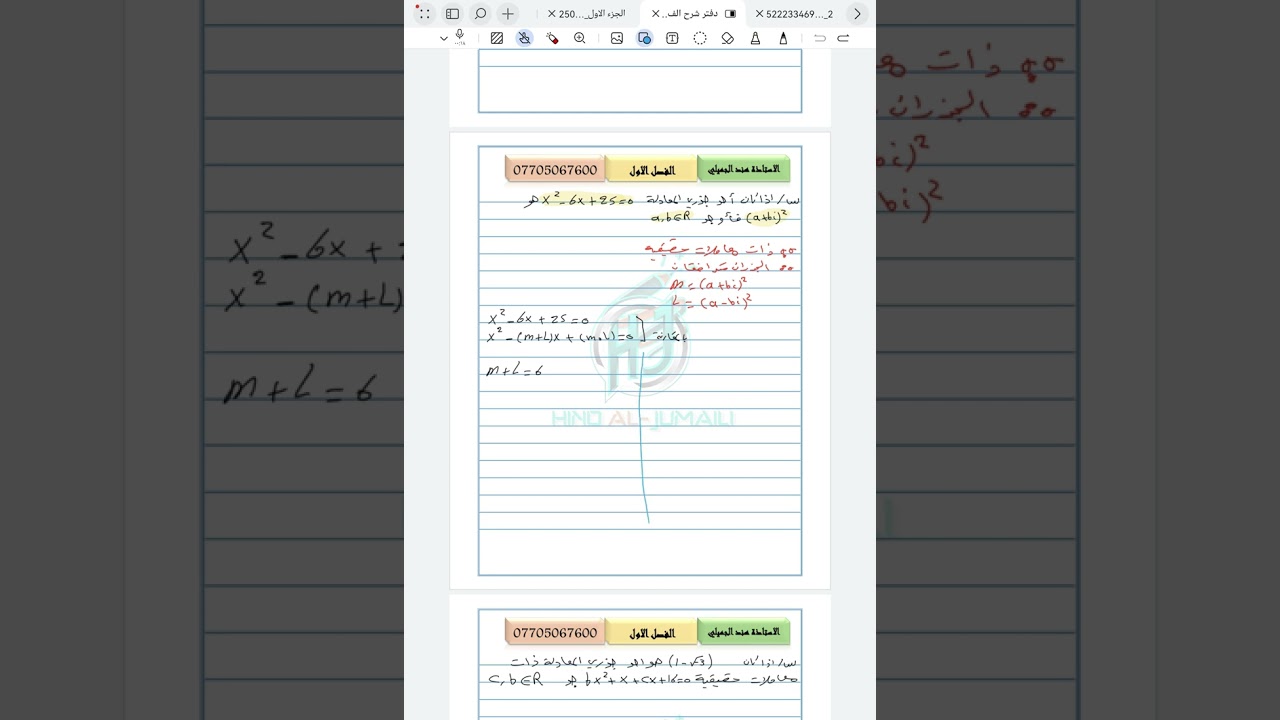 الجزء الاول_...250
دفتر شرح الف..
522233469..._2
٠٠:١٨
الاستاذة هند الجميلي
الفصل الاول
07705067600
س/ اذا كان أحد جذري المعادلة x² - 6x + 25 = 0 هو
(a+bi)² فأوجد a,b∈R
ذات معاملات حقيقيه
∴ الجذران مترافقان
m = (a+bi)²
L = (a-bi)²
x² - 6x + 25 = 0
x² - (m+L)x + (m.L) = 0 بالمقارنة
m+L = 6
HIND AL-JUMAILI
الاستاذة هند الجميلي
الفصل الاول
07705067600
س/ اذا كان هو احد جذري المعادلة ذات
معاملات حقيقية جد c,b∈R
x² - 6x +
x² - (m+L)
m+L = 6
ذات
الجذران
bi)²
bi)²